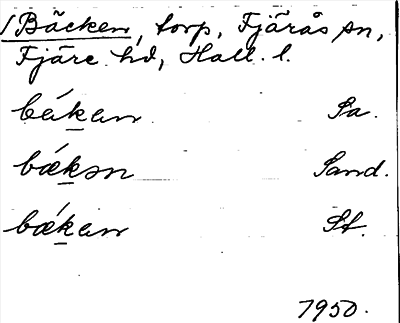 /Bäcken, torp, Fjärås sn,
Fjäre hd, Hall. l.
bǽkan Sa.
bǽkən Sand.
bǽkan St.
1950.